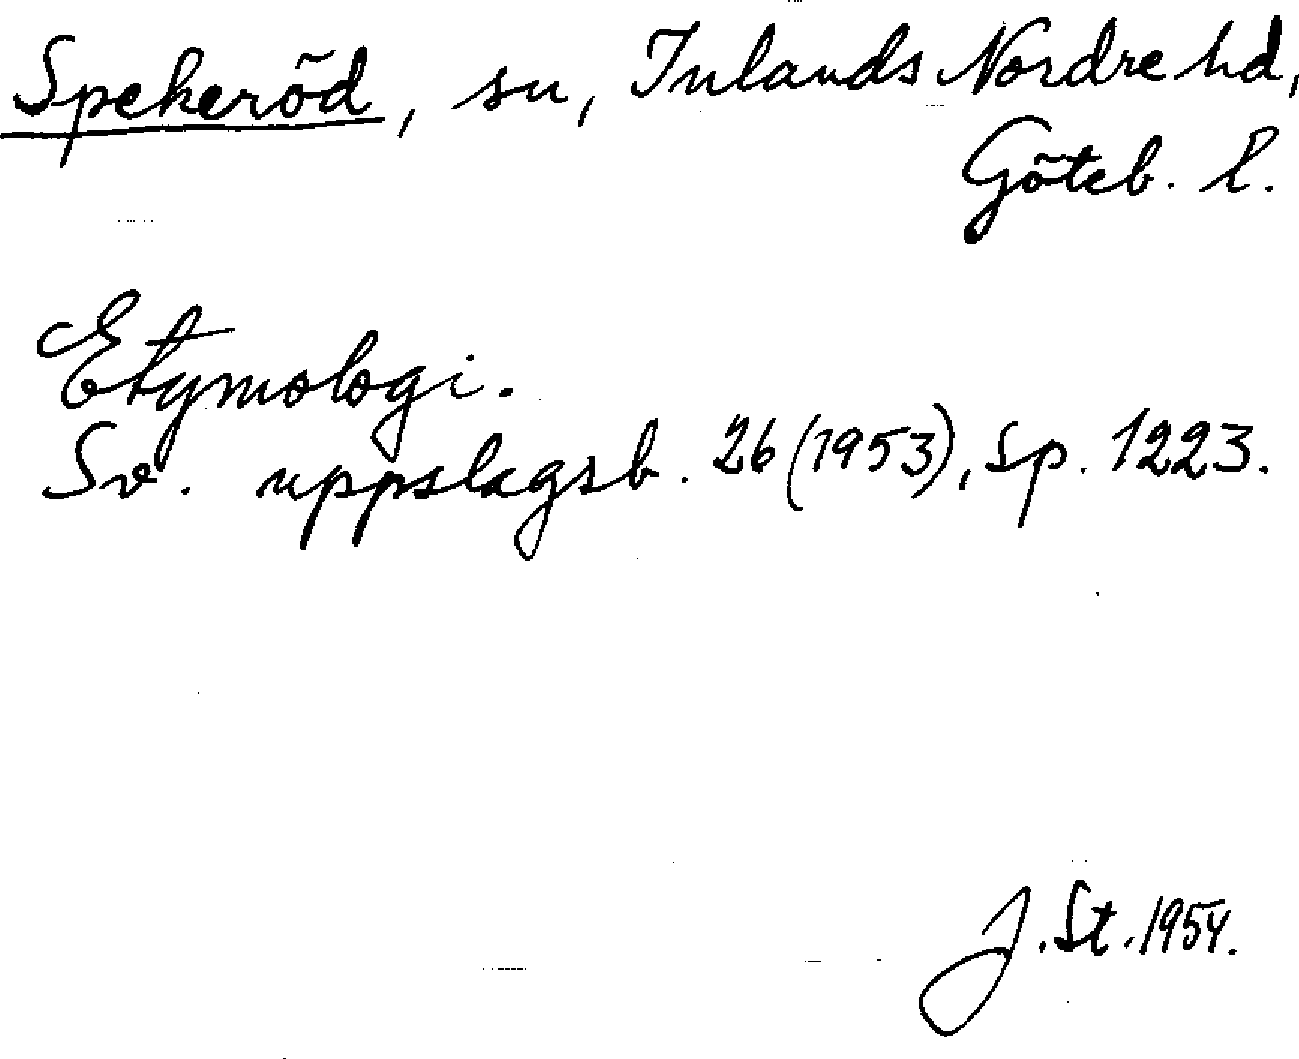 Spekeröd, sn, Inlands Nordre hd,
Göteb. l.
Etymologi.
Sv. uppslagsb. 26 (1953), sp. 1223.
J. St. 1954.